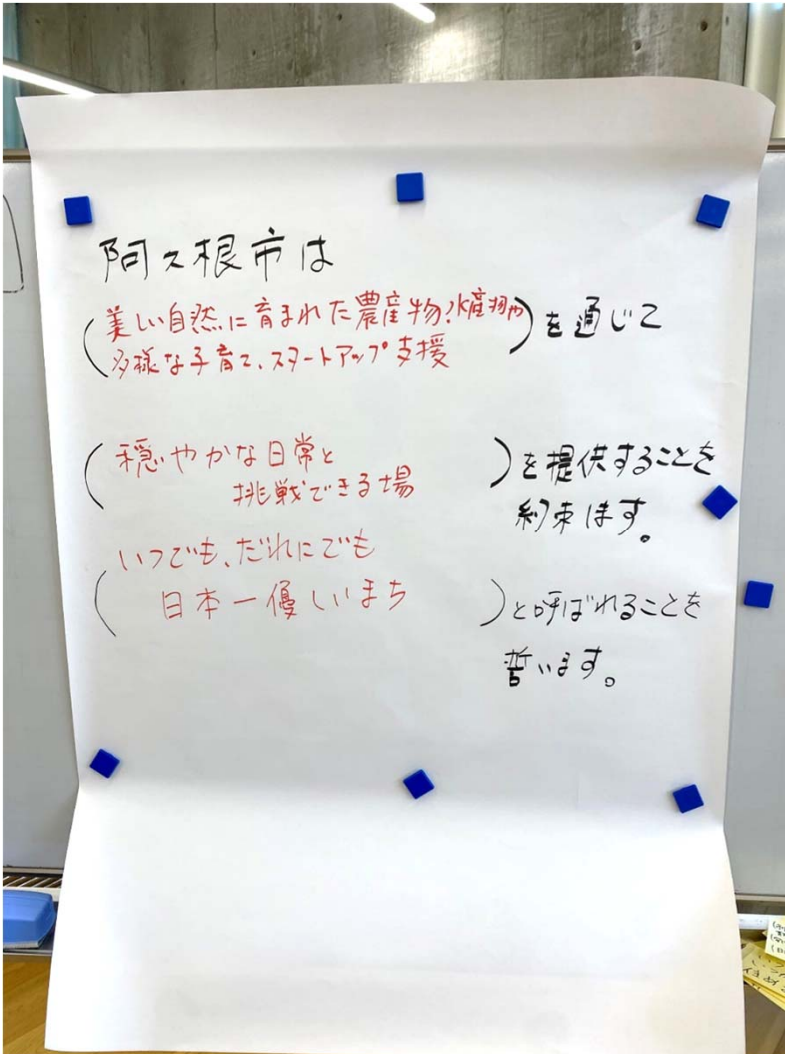 阿久根市は
(美しい自然に育まれた農産物、水産物や
多様な子育て、スタートアップ支援)を通じて
(穏やかな日常と
挑戦できる場)を提供することを
約束ます。
(いつでも、だれにでも
日本一優しいまち)と呼ばれることを
誓います。